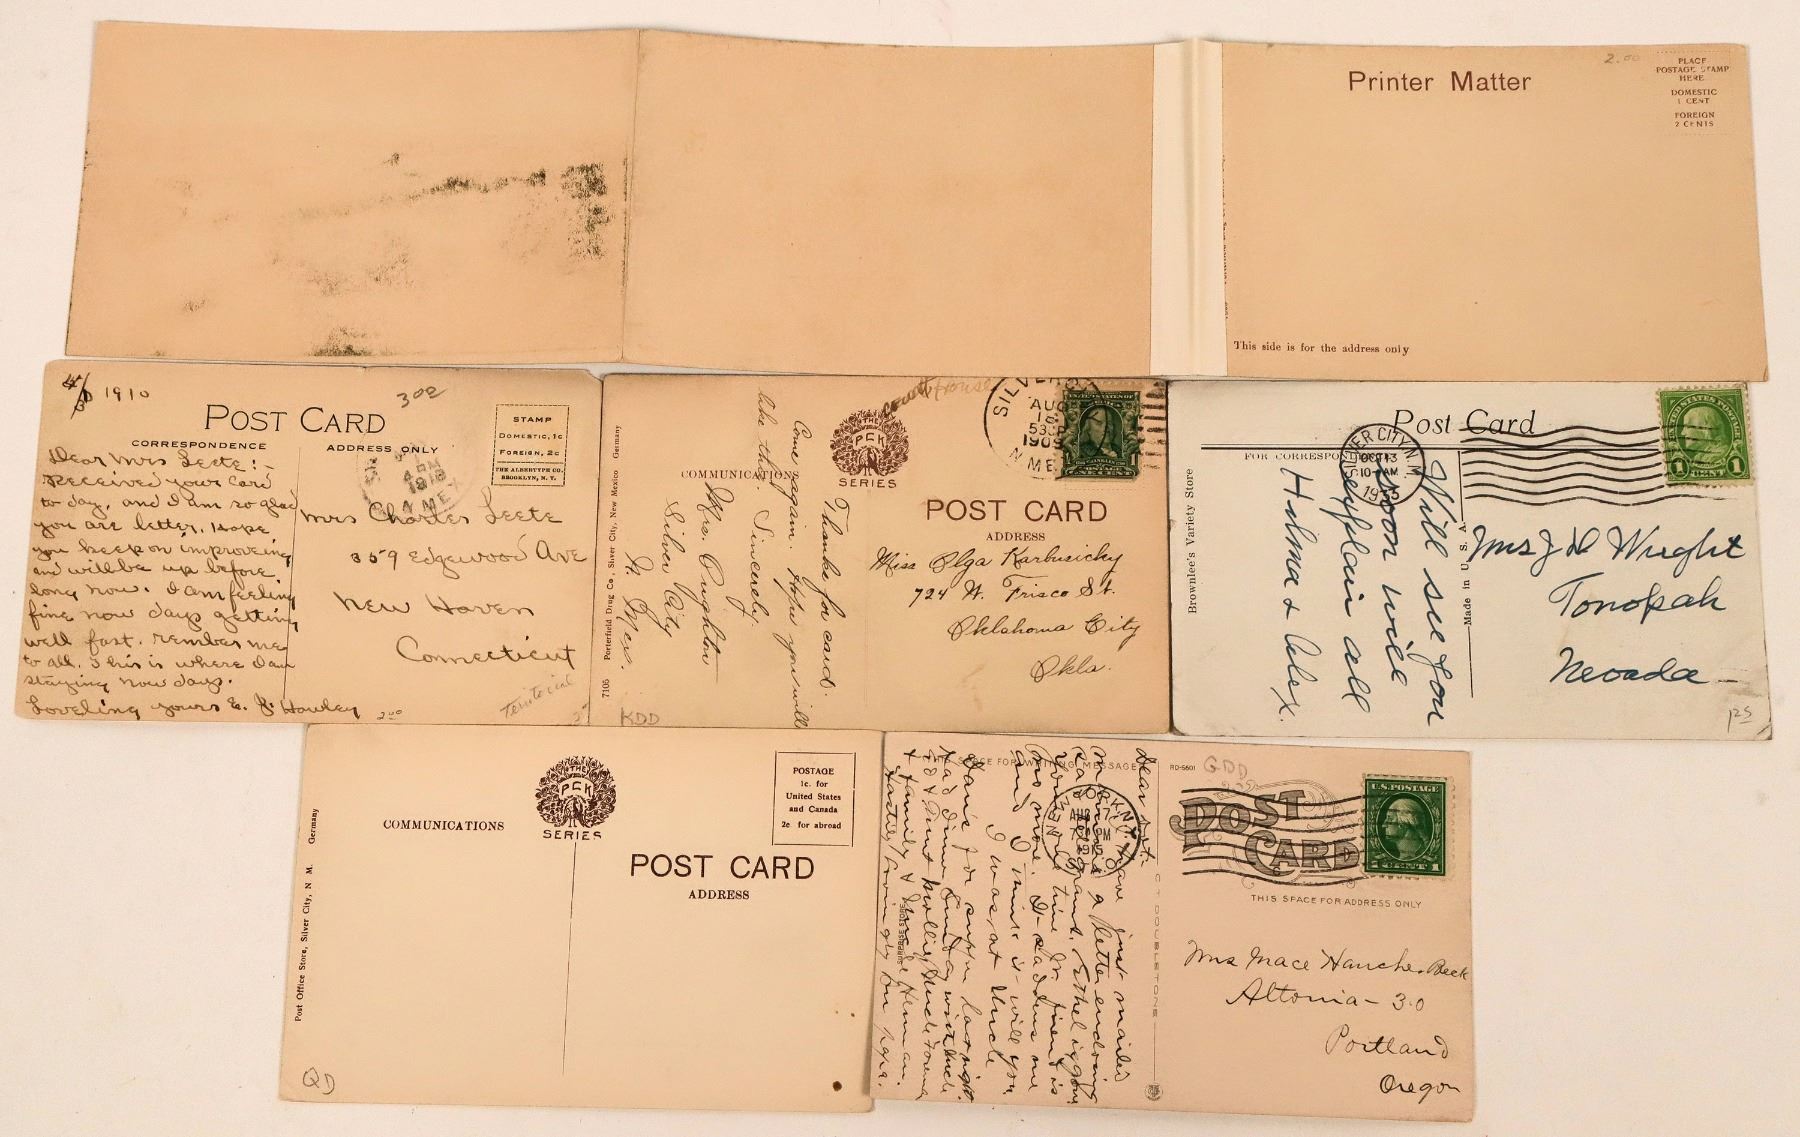 Printer Matter
2.00
PLACE
POSTAGE STAMP
HERE
DOMESTIC
1 CENT
FOREIGN
2 CENTS
This side is for the address only
1910
302
POST CARD
CORRESPONDENCE
ADDRESS ONLY
STAMP
DOMESTIC, 1c
FOREIGN, 2c
THE ALBERTYPE CO.
BROOKLYN, N. Y.
Dear Mrs Leete:-
Received your card
to day, and I am so glad
you are better, Hope
you keep on improveing
and will be up before
long now. I am feeling
fine now days getting
well fast. rember me
to all. This is where I am
staying now days.
Loveling yours E. J. Hawley
Mrs Charles Leete
359 Edgewood Ave
New Haven
Connecticut
Territorial
2.00
Court House
THE
PCK
SERIES
COMMUNICATION
POST CARD
ADDRESS
SILVER C
AUG
1909
N MEX
7105 Porterfield Drug Co., Silver City, New Mexico Germany
Thanks for card.
Come again. Hope you will
like this.
Sincerely,
Mrs. Oughton
Silver City
N. Mex.
Miss Olga Karbusicky
724 W. Frisco St.
Oklahoma City
Okla.
KDD
Post Card
FOR CORRESPONDENCE
SILVER CITY, N.M.
OCT 13
10 AM
1933
UNITED STATES POSTAGE
1 CENT 1
Brownlee's Variety Store
Made in U. S. A.
Will see you
soon will
explain all
Hilma & Alex.
Mrs J D Wright
Tonopah
Nevada
THE
PCK
SERIES
COMMUNICATIONS
POST CARD
ADDRESS
POSTAGE
1c. for
United States
and Canada
2c for abroad
Post Office Store, Silver City, N. M. Germany
QD
THIS SPACE FOR WRITING MESSAGES
RD-5601
GDD
POST
CARD
U.S. POSTAGE
1 CENT 1
THIS SPACE FOR ADDRESS ONLY
AUG
PM
1915
C T DOUBLETONE
SURPRISE STORE
have just mailed
a letter enclosing
no more. It saddens me
and I think it will you
I was at Uncle
Dan's for supper last night.
Had dinner Sunday with Uncle
& family &
Mrs Mace
Altonia - 30
Portland
Oregon